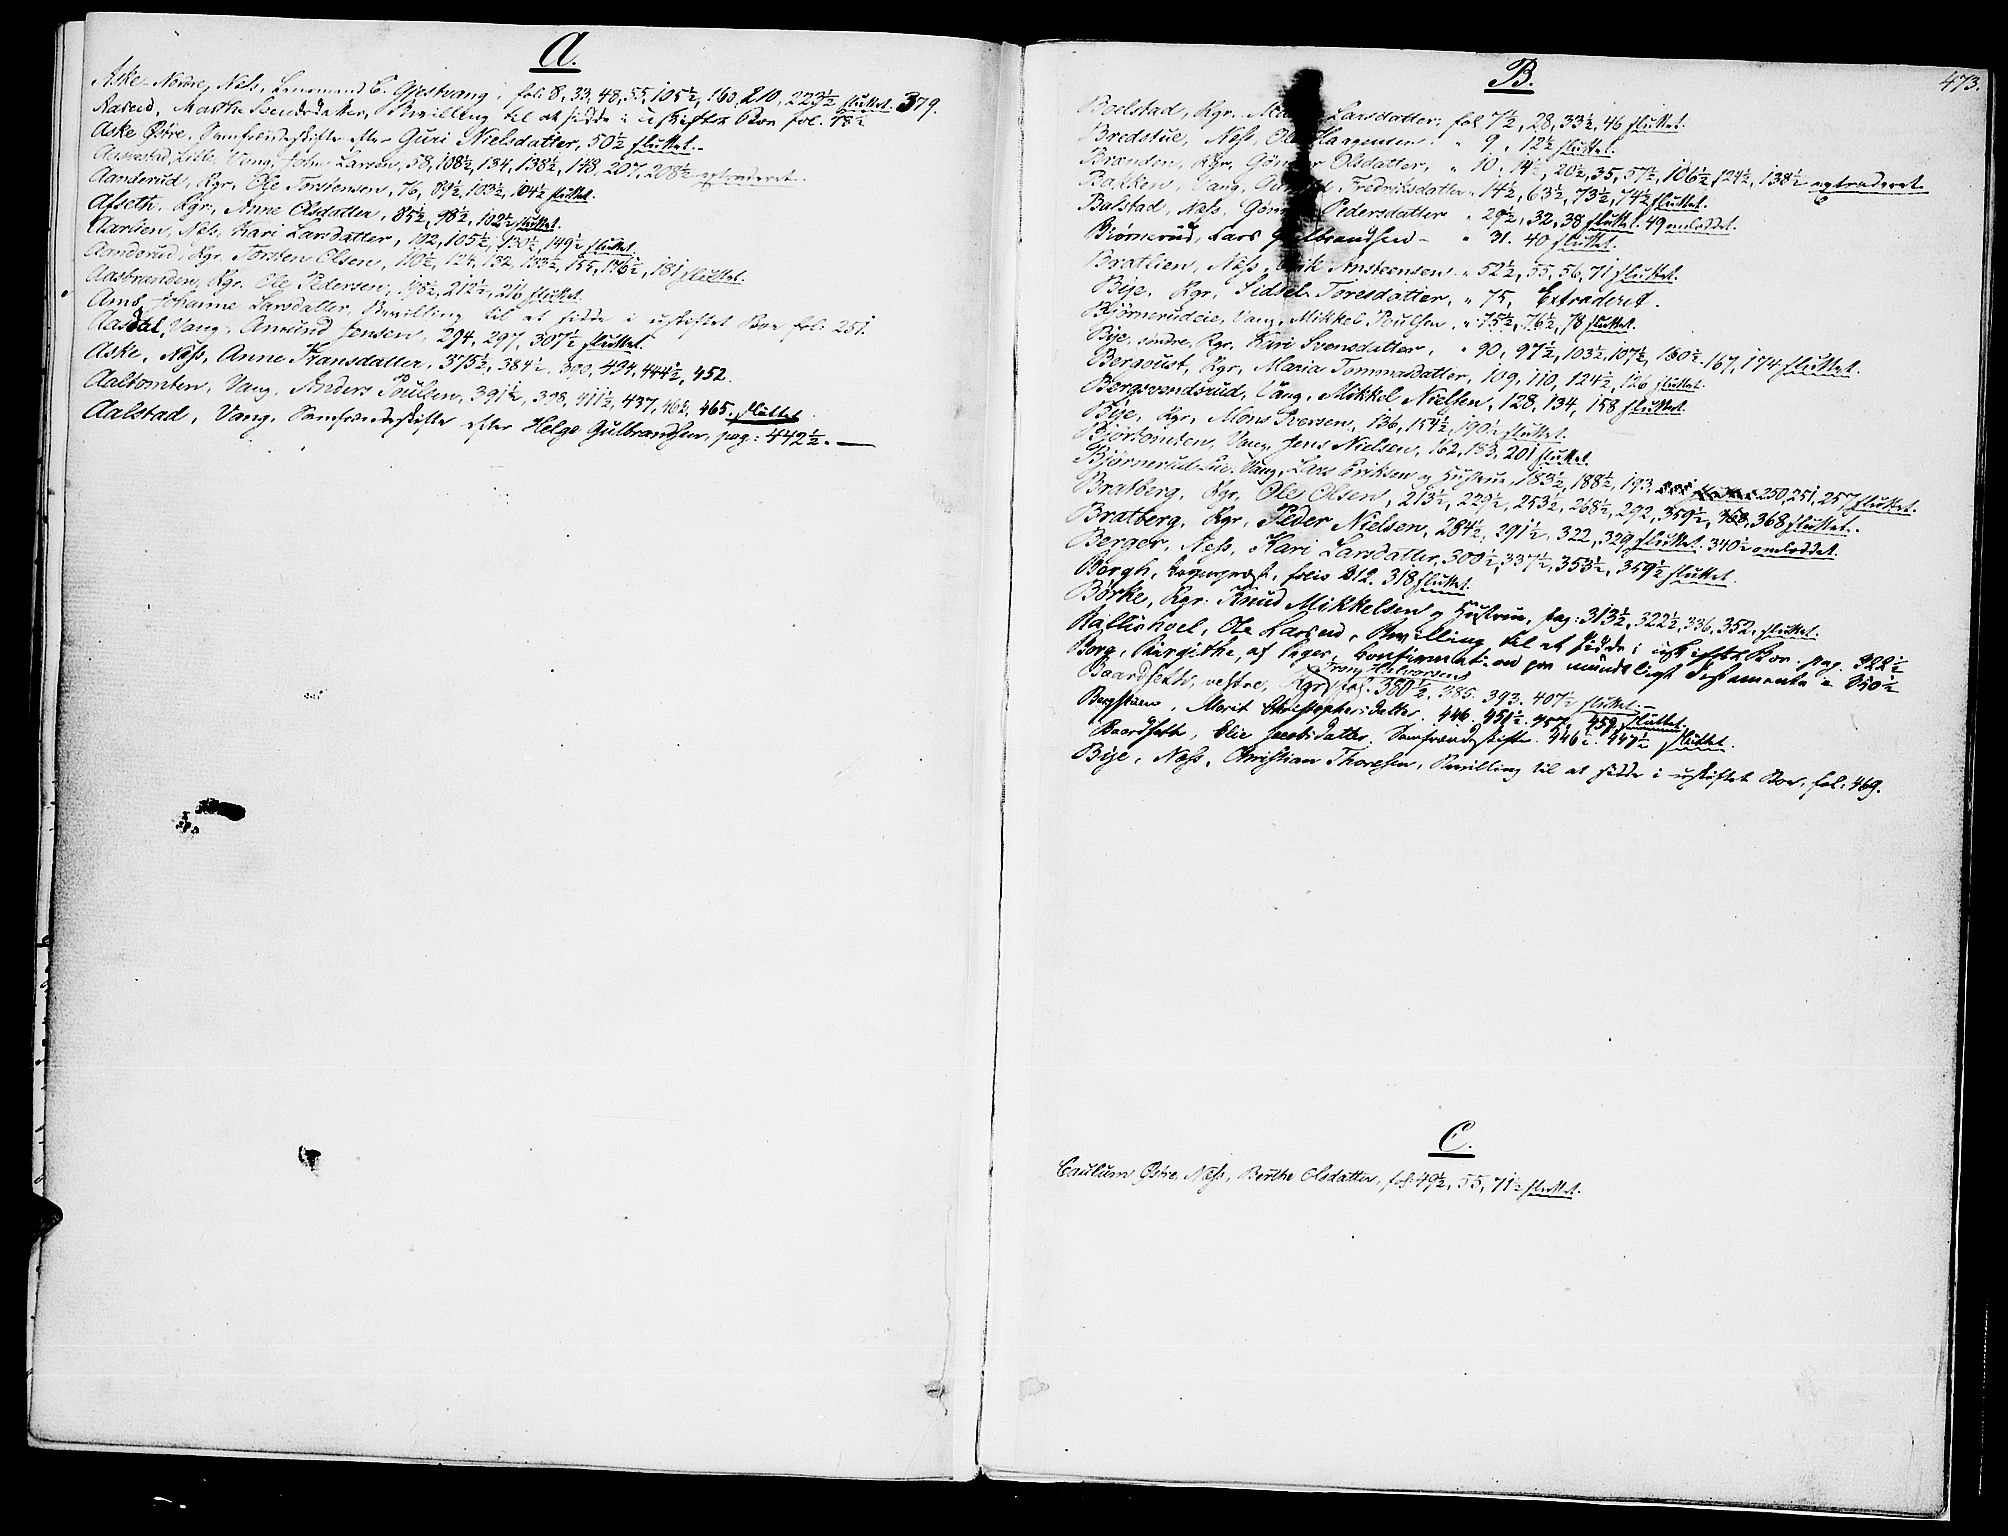 A.
Aske Nordre, Næs, Lensmand C. Gjestvang, fol: 8, 33, 48, 55, 105½, 160, 210, 223½ sluttet. 379.
Aasrud, Marthe Svendsdatter, Bevilling til at sidde i uskiftet Boe fol. 48½
Aske Østre, Samfrændeskifte efter Guri Nielsdatter, 50½ sluttet.
Lille, Vang, John Larsen, 58, 108½, 134, 138½, 148, 207, 208½ extraderet.
Aanderud, Rgr, Ole Torstensen, 76, 89½, 103½, 104½ sluttet.
Afseth, Rgr, Anne Olsdatter, 85½, 98½, 102½ sluttet.
Aarlien, Næs, Kari Larsdatter, 102, 105½, 130½, 149½ sluttet.
Aanderud, Rgr, Torsten Olsen, 110½, 124, 132, 133½, 155, 176½, 181 sluttet.
Aasbranden, Rgr, Ole Pedersen, 198½, 212½, 216 sluttet.
Ams, Johanne Larsdatter, Bevilling til at sidde i uskiftet Boe fol. 251.
Aasdal, Vang, Amund Jensen, 294, 297, 307½ sluttet.
Aske, Næss, Anne Fransdatter, 375½, 384½, 390, 434, 444½, 452.
Aaltomten, Vang, Anders Poulsen, 391½, 398, 411½, 437, 462, 465, sluttet
Aalstad, Vang, Samfrændeskifte efter Helge Gulbrandsen, pag: 442½.
B.
473.
Boelstad, Rgr, Larsdatter, fol 7½, 28, 33½, 46 sluttet.
Bredstue, Næss, Ole Haagensen " 9, 12½ sluttet.
Branden, Rgr, Olsdatter, " 10, 14½, 20½, 35, 57½, 106½, 124½, 138½ extraderet
Bakken, Vang, Fredriksdatter " 14½, 63½, 73½, 74½ sluttet.
Balstad, Næs, Pedersdatter " 29½, 32, 38 sluttet. 49 omloddet.
Biørnerud, Lars Gulbrandsen " 31. 40 sluttet.
Bratlien, Næss, Erik Ansteensen " 52½, 55, 56, 71 sluttet.
Bye, Rgr, Sidsel Toresdatter, " 75, Extraderet.
Bjørnerudeie, Vang, Mikkel Poulsen, " 75½, 76½, 78 sluttet.
Bye, søndre, Rgr, Kari Svensdatter, " 90, 97½, 103½, 137½, 160½, 167, 174 sluttet.
Bergqvist, Rgr, Maria Tommasdatter, 109, 110, 124½, 126 sluttet.
Bergsvendsrud, Vang, Mikkel Nielsen, 128, 134, 158 sluttet.
Bye, Rgr, Mons Iversen, 136, 154½, 190½ sluttet.
Bjørtomten, Vang, Jens Nielsen, 162, 183, 201 sluttet.
Bjørnerud Eie, Vang, Lars Eriksen og Hustrue, 183½, 188½, 193, 250, 251, 257, sluttet.
Bratberg, Rgr, Ole Olsen, 213½, 229½, 253½, 268½, 292, 359½, 368, 368 sluttet.
Bratberg, Rgr, Peder Nielsen, 284½, 291½, 322, 329 sluttet. 340½ omloddet.
Berger, Næss, Kari Larsdatter, 300½, 337½, 353½, 359½ sluttet.
Borgh, folio 312. 318 sluttet.
Børke, Rgr. Knud Mikkelsen og Hustrue, pag: 313½, 322½, 336, 352, sluttet.
Ballishoel, Ole Larsen, Bevilling til at sidde i uskiftet Boe pag. 322½
Borg, Birgithe, af Ringer, Confirmation paa mundtligt Testamente " 350½
Trony Halvorsen
Baardseth, vestre, Rgr, fol. 380½, 385. 393. 407½ sluttet.
Bergstuen, Marit Christophersdatter. 446. 451½. 457. 459. sluttet.
Baardseth, Elie Jacobsdatter. Samfrændeskifte. 446½. 447½ sluttet.
Bye, Næss, Christian Thoresen, Bevilling til at sidde i uskiftet Boe, fol: 469.
C.
Caulum Østre, Næss, Berthe Olsdatter, fol: 49½, 55, 71½ sluttet.